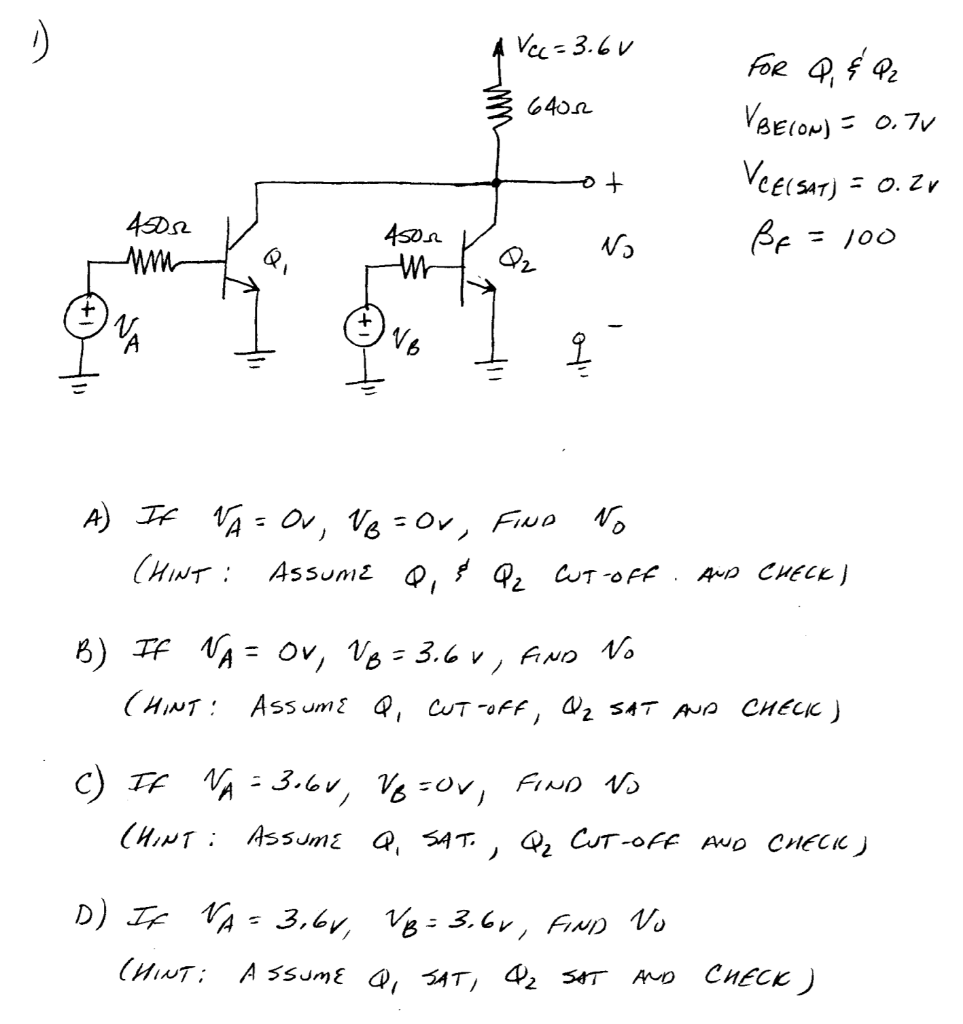 1)
VCC = 3.6V
640Ω
FOR Q1 & Q2
VBE(ON) = 0.7V
VCE(SAT) = 0.2V
βF = 100
+
vO
-
450Ω
Q1
450Ω
Q2
+
-
vA
+
-
vB
A) IF vA = 0V, vB = 0V, FIND vO
(HINT: ASSUME Q1 & Q2 CUT-OFF. AND CHECK)
B) IF vA = 0V, vB = 3.6V, FIND vO
(HINT: ASSUME Q1 CUT-OFF, Q2 SAT AND CHECK)
C) IF vA = 3.6V, vB = 0V, FIND vO
(HINT: ASSUME Q1 SAT., Q2 CUT-OFF AND CHECK)
D) IF vA = 3.6V, vB = 3.6V, FIND vO
(HINT: ASSUME Q1 SAT, Q2 SAT AND CHECK)